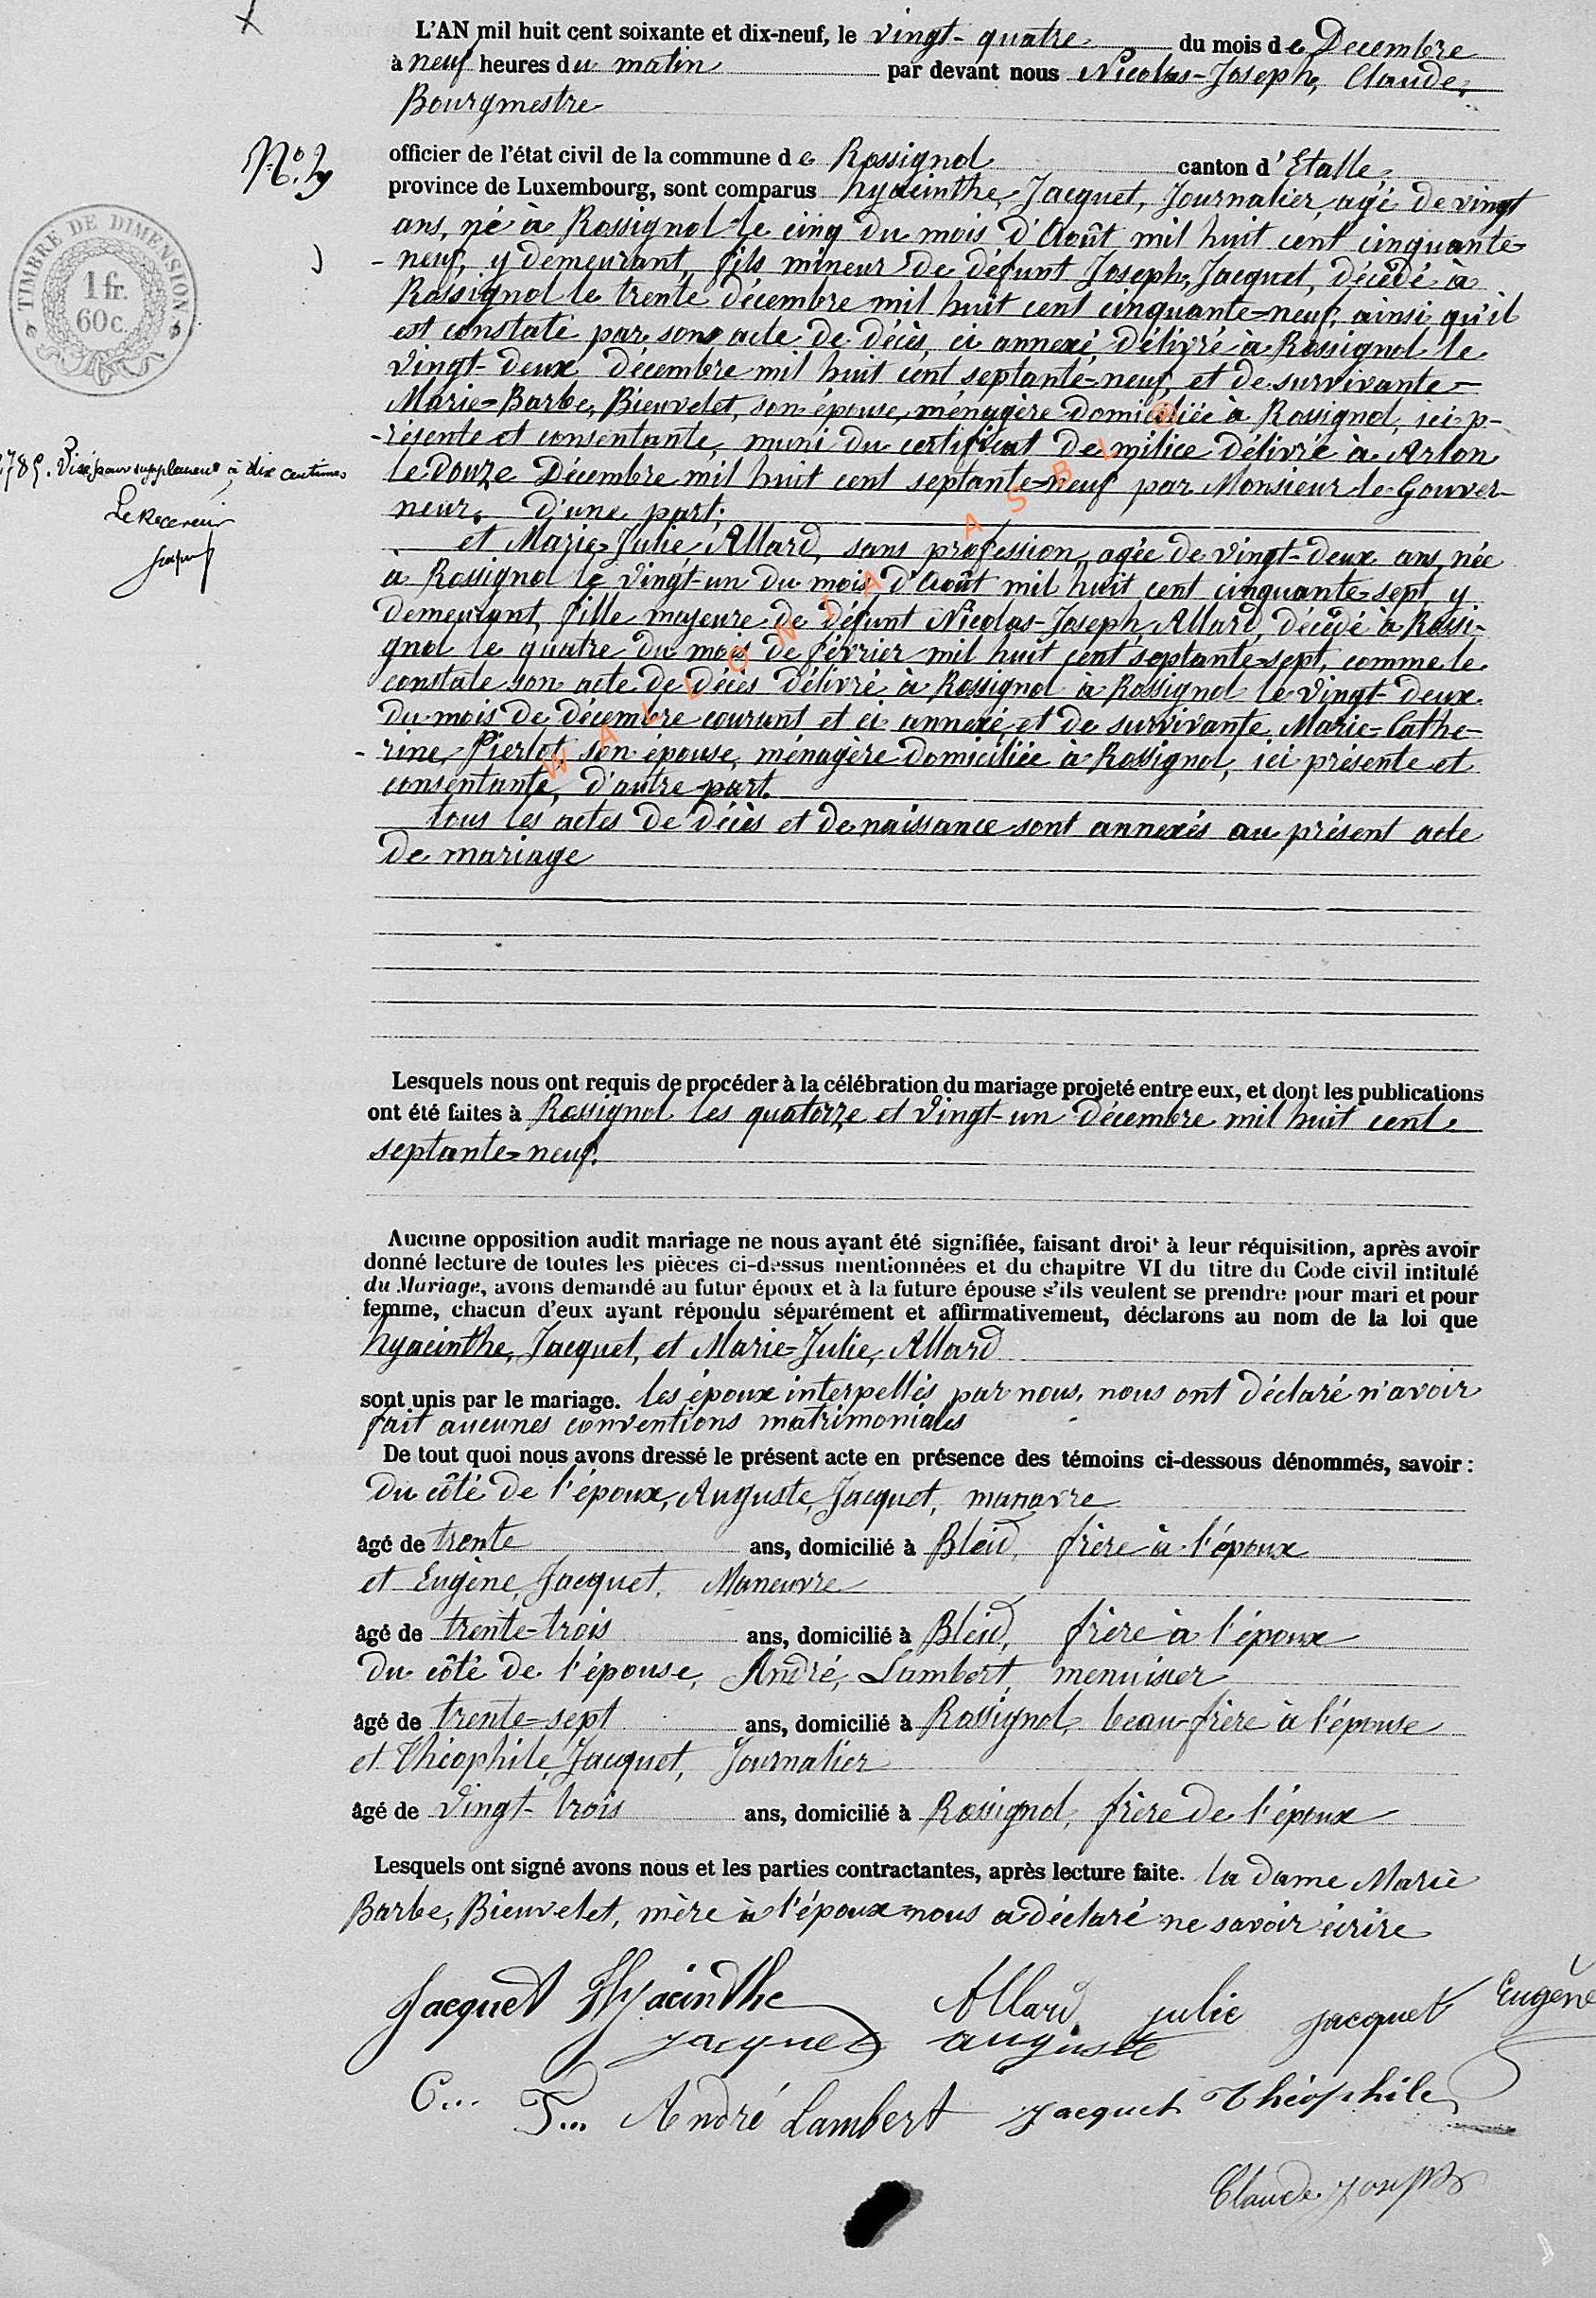 L'AN mil huit cent soixante et dix-neuf, le vingt-quatre du mois de Decembre
à neuf heures du matin par devant nous Nicolas-Joseph, Claude,
Bourgmestre
officier de l'état civil de la commune de Rossignol canton d'Etalle
province de Luxembourg, sont comparus hyacinthe, Jacquet, Journalier, agé de vingt
ans, né à Rossignol le cinq du mois d'Août mil huit cent cinquante-
neuf, y demeurant, fils mineur de défunt Joseph, Jacquet, décédé à
Rossignol le trente décembre mil huit cent cinquante=neuf, ainsi qu'il
est constaté par son acte de décès, ci annexé, délivré à Rossignol le
vingt-deux décembre mil huit cent septante=neuf, et de survivante=
Marie=Barbe, Bieuvelet, son épouse, ménagère domiciliée à Rossignol, ici p-
-résente et consentante, muni du certificat de milice délivré à Arlon
le Douze Décembre mil huit cent septante=neuf par Monsieur le Gouver-
neur, d'une part;
et Marie=Julie, Allard, sans profession, agée de vingt-deux ans, née
à Rossignol le vingt-un du mois d'Août mil huit cent cinquante=sept, y
demeurant, fille majeure de défunt Nicolas-Joseph, Allard, décédé à Rossi-
gnol le quatre du mois de février mil huit cent septante=sept, comme le
constate son acte de décès délivré à Rossignol à Rossignol le vingt-deux
du mois de décembre courant et ci annexé, et de survivante Marie=Cathe-
-rine, Pierlot, son épouse, ménagère domiciliée à Rossignol, ici présente et
consentante, d'autre part.
tous les actes de décès et de naissance sont annexés au présent acte
de mariage
N.º
TIMBRE DE DIMENSION
1 fr.
60 c.
Visé pour supplément à dix centimes
Le Receveur
WALLONIA ASBL @
Lesquels nous ont requis de procéder à la célébration du mariage projeté entre eux, et dont les publications
ont été faites à Rossignol les quatorze et vingt-un décembre mil huit cent
septante=neuf.
Aucune opposition audit mariage ne nous ayant été signifiée, faisant droit à leur réquisition, après avoir
donné lecture de toutes les pièces ci-dessus mentionnées et du chapitre VI du titre du Code civil intitulé
du Mariage, avons demandé au futur époux et à la future épouse s'ils veulent se prendre pour mari et pour
femme, chacun d'eux ayant répondu séparément et affirmativement, déclarons au nom de la loi que
hyacinthe, Jacquet, et Marie=Julie, Allard
sont unis par le mariage. les époux interpellés par nous, nous ont déclaré n'avoir
fait aucunes conventions matrimoniales
De tout quoi nous avons dressé le présent acte en présence des témoins ci-dessous dénommés, savoir :
du côté de l'époux, Auguste, Jacquet, manœvre
âgé de trente ans, domicilié à Bleid, frère à l'époux
et Eugène, Jacquet, Maneuvre
âgé de trente-trois ans, domicilié à Bleid, frère à l'époux
du côté de l'épouse, André, Lambert, menuisier
âgé de trente=sept ans, domicilié à Rossignol, beau-frère à l'épouse
et Théophile, Jacquet, Journalier
âgé de vingt-trois ans, domicilié à Rossignol, frère de l'époux
Lesquels ont signé avons nous et les parties contractantes, après lecture faite. la dame Marie
Barbe, Bieuvelet, mère à l'époux nous a déclaré ne savoir écrire
Jacquet Hyacinthe Allard julie jacquet Eugène
jacquet auguste
C... P... André Lambert Jacquet Théophile
Claude Joseph